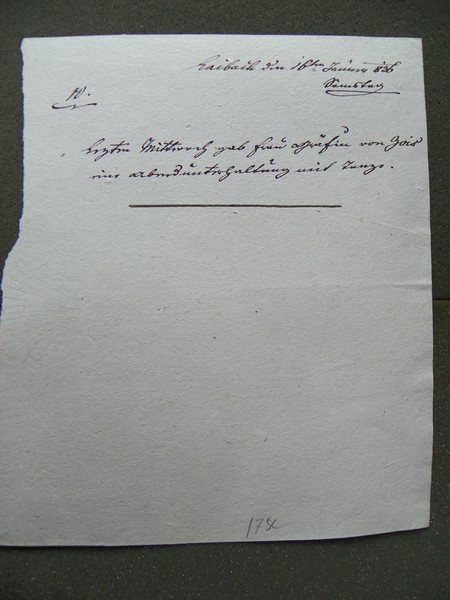 Laibach den 16ten Jänner 836
Samstag
10.
Lezten Mittwoch gab Frau Gräfin von Zois
eine Abendunterhaltung mit Tanze.